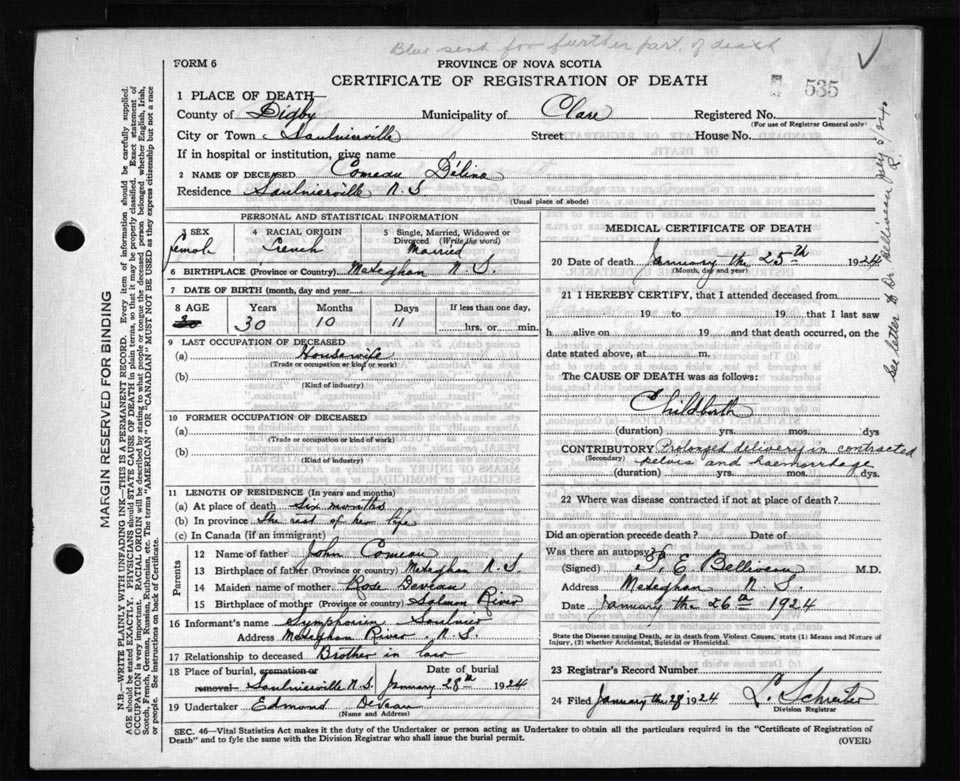 Blue sent for further part. of death
FORM 6
PROVINCE OF NOVA SCOTIA
CERTIFICATE OF REGISTRATION OF DEATH
535
1 PLACE OF DEATH—
County of Digby Municipality of Clare Registered No.
(For use of Registrar General only)
City or Town Saulnierville Street House No.
If in hospital or institution, give name
2 NAME OF DECEASED Comeau Délina
Residence Saulnierville N.S
(Usual place of abode)
PERSONAL AND STATISTICAL INFORMATION
3 SEX female
4 RACIAL ORIGIN French
5 Single, Married, Widowed or Divorced (Write the word) Married
6 BIRTHPLACE (Province or Country) Meteghan N.S.
7 DATE OF BIRTH (month, day and year)
8 AGE Years Months Days If less than one day,
30 30 10 11 hrs. or min.
9 LAST OCCUPATION OF DECEASED
(a) Housewife
(Trade or occupation or kind of work)
(b)
(Kind of industry)
10 FORMER OCCUPATION OF DECEASED
(a)
(Trade or occupation or kind of work)
(b)
(Kind of industry)
11 LENGTH OF RESIDENCE (In years and months)
(a) At place of death six months
(b) In province The rest of her life
(c) In Canada (if an immigrant)
Parents
12 Name of father John Comeau
13 Birthplace of father (Province or Country) Meteghan N.S.
14 Maiden name of mother Rose Deveau
15 Birthplace of mother (Province or country) Salmon River
16 Informant's name Symphorien Saulnier
Address Meteghan River N.S.
17 Relationship to deceased Brother in law
18 Place of burial, cremation or Date of burial
removal Saulnierville N.S. January 28th 1924
19 Undertaker Edmond DeVeau
(Name and Address)
MEDICAL CERTIFICATE OF DEATH
20 Date of death January the 25th 1924
(Month, day and year)
21 I HEREBY CERTIFY, that I attended deceased from
19 to 19 that I last saw
h alive on 19 and that death occurred, on the
date stated above, at m.
The CAUSE OF DEATH was as follows:
Childbirth
(duration) yrs. mos. dys
CONTRIBUTORY Prolonged delivery in contracted
(Secondary) pelvis and haemorrhage
(duration) yrs. mos. dys.
22 Where was disease contracted if not at place of death?
Did an operation precede death? Date of
Was there an autopsy?
(Signed) P. E. Belliveau M.D.
Address Meteghan N.S.
Date January the 26th 1924
State the Disease causing Death, or in death from Violent Causes, state (1) Means and Nature of Injury, (2) whether Accidental, Suicidal or Homicidal.
23 Registrar's Record Number
24 Filed January the 28 1924 L. Schreiber
Division Registrar
SEC. 46—Vital Statistics Act makes it the duty of the Undertaker or person acting as Undertaker to obtain all the particulars required in the "Certificate of Registration of
Death" and to fyle the same with the Division Registrar who shall issue the burial permit. (OVER)
MARGIN RESERVED FOR BINDING
N.B.—WRITE PLAINLY WITH UNFADING INK—THIS IS A PERMANENT RECORD. Every item of information should be carefully supplied.
AGE should be stated EXACTLY. PHYSICIANS should STATE CAUSE OF DEATH in plain terms, so that it may be properly classified. Exact statement of
OCCUPATION is very important. RACIAL ORIGIN will be described by stating to what people or tongue the deceased person belonged whether English, Irish,
Scotch, French, German, Russian, Ruthenian, etc. The terms "AMERICAN" OR "CANADIAN" MUST NOT BE USED as they express citizenship but not a race
or people. See instructions on back of Certificate.
See letter to Dr Belliveau